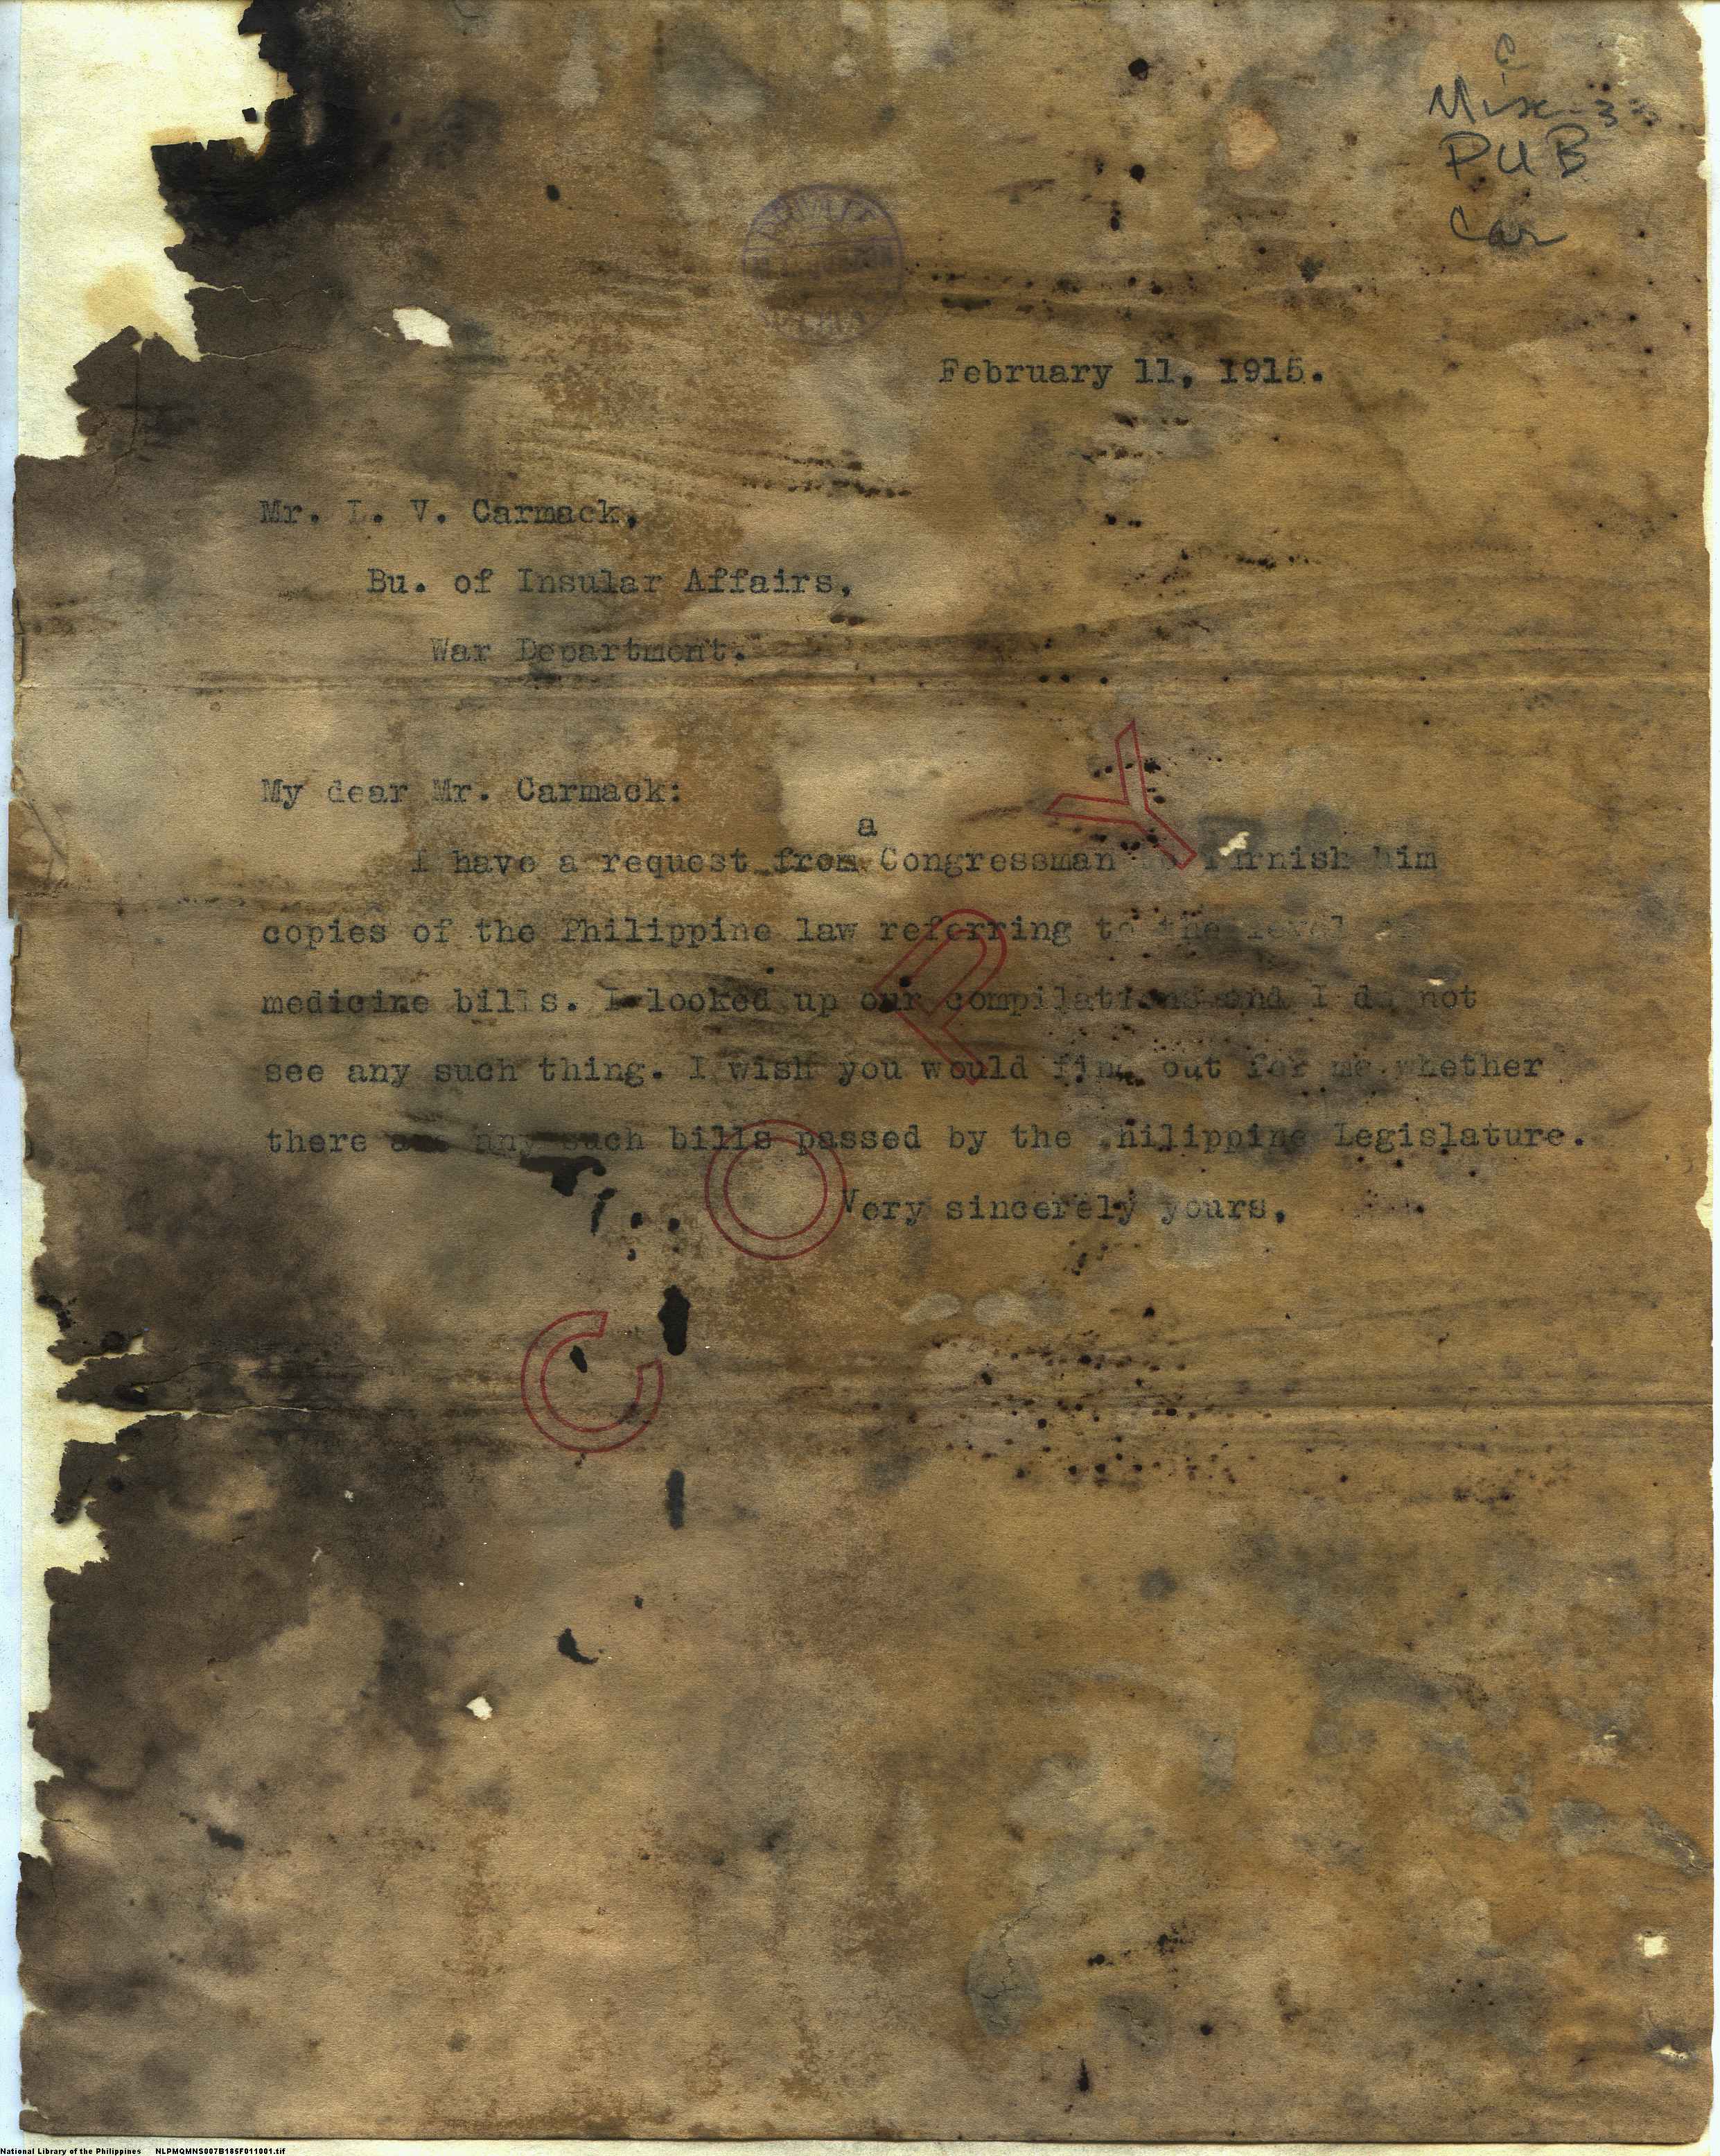 C
Misc-33
PUB
Car
February 11, 1915.
Mr. L. V. Carmack,
Bu. of Insular Affairs,
War Department.
My dear Mr. Carmack:
a
I have a request from Congressman to furnish him
copies of the Philippine law referring to the
medicine bills. I looked up our compilations and I do not
see any such thing. I wish you would find out for me whether
there are any such bills passed by the Philippine Legislature.
Very sincerely yours,
COPY
National Library of the Philippines NLPMQMNS007B185F011001.tif